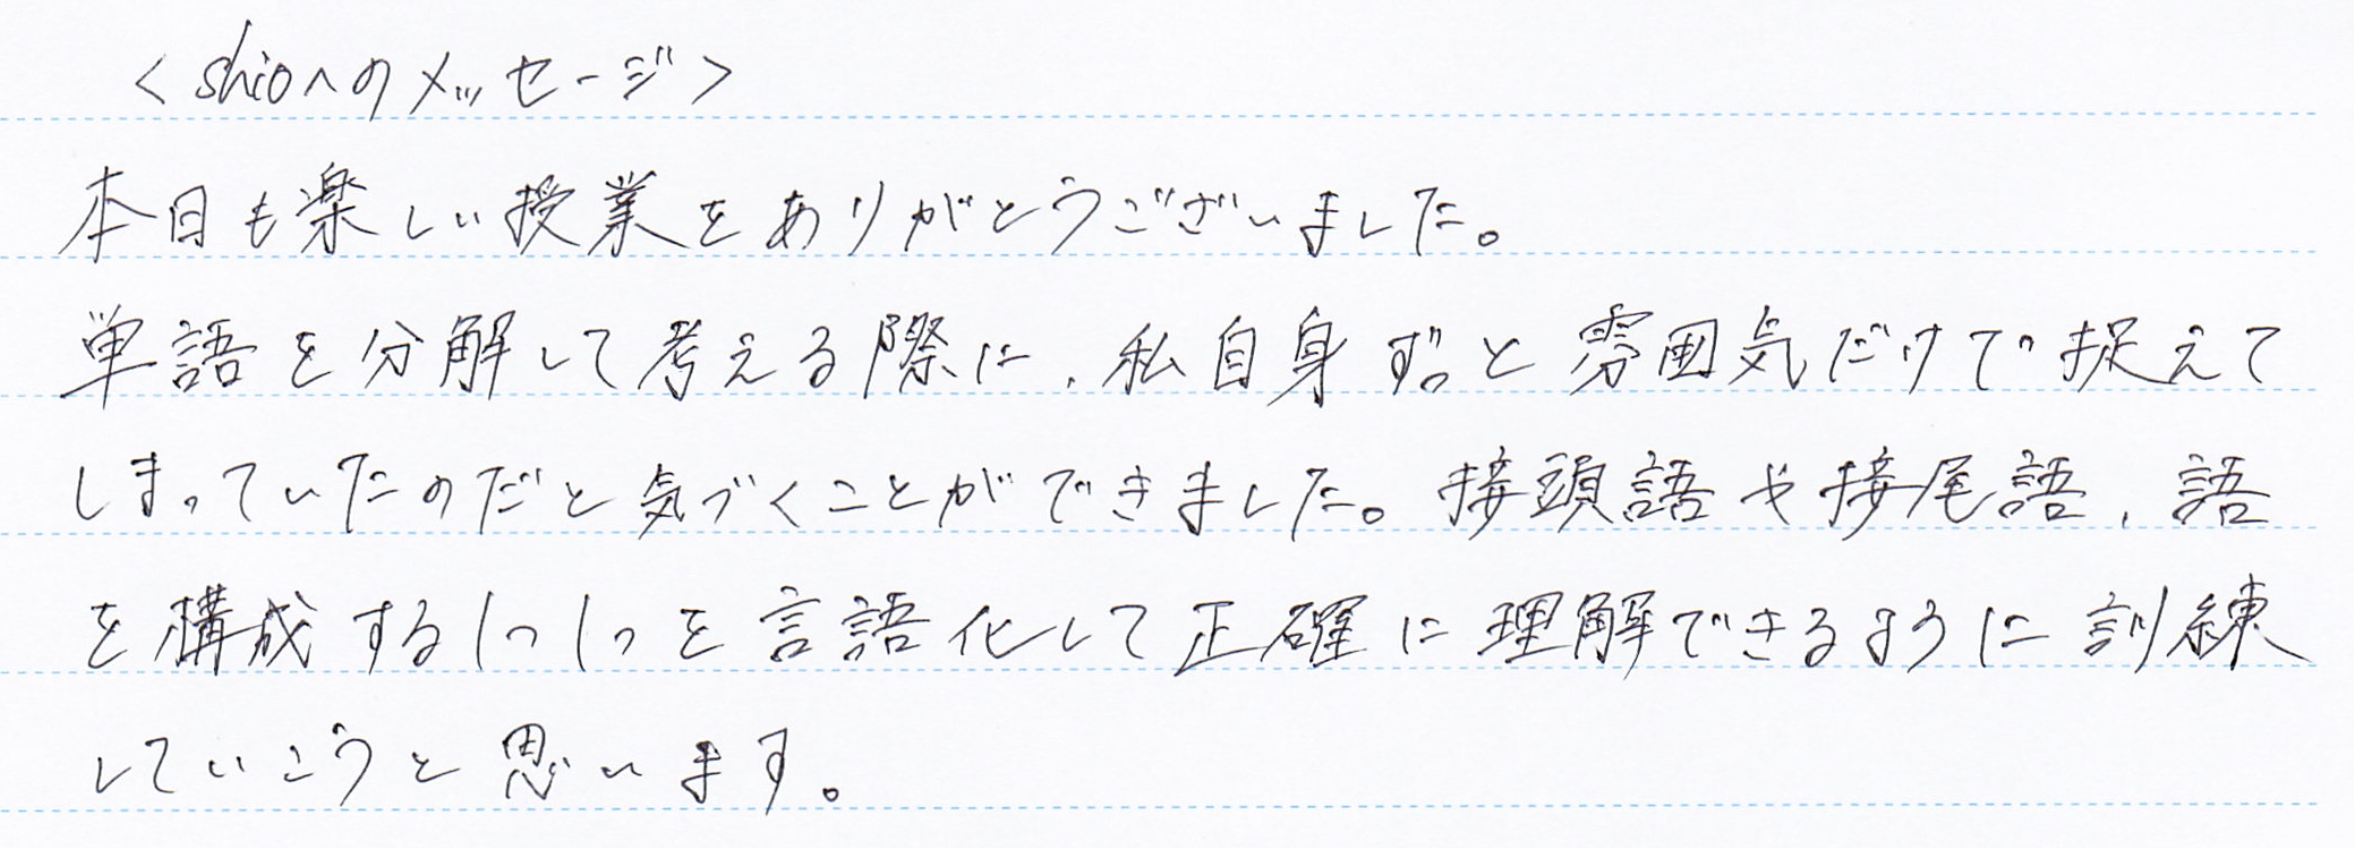 ＜shioへのメッセージ＞
本日も楽しい授業をありがとうございました。
単語を分解して考える際に、私自身ずっと雰囲気だけで捉えて
しまっていたのだと気づくことができました。接頭語や接尾語、語
を構成する1つ1つを言語化して正確に理解できるように訓練
していこうと思います。